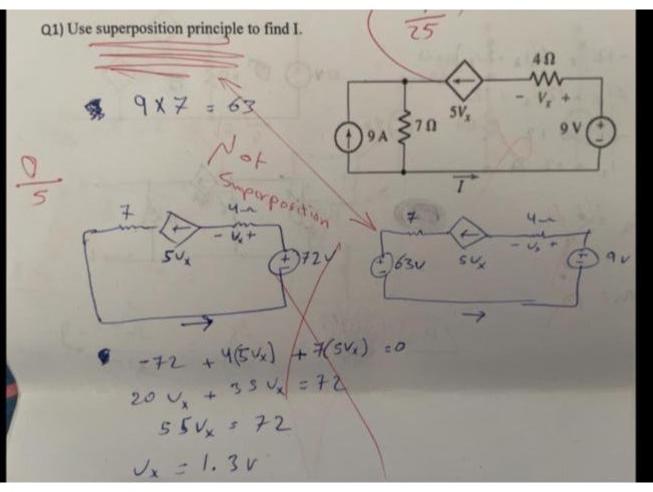 Q1) Use superposition principle to find I.
25
4Ω
- Vx +
5Vx
9 A
7Ω
9 V
I
9 x 7 = 63
0
5
Not
Superposition
7
4Ω
- Vx +
5Vx
72V
7
4Ω
- Vx +
63V
5Vx
9V
-72 + 4(5Vx) + 7(5Vx) = 0
20 Vx + 35 Vx = 72
55Vx = 72
Vx = 1.3 V